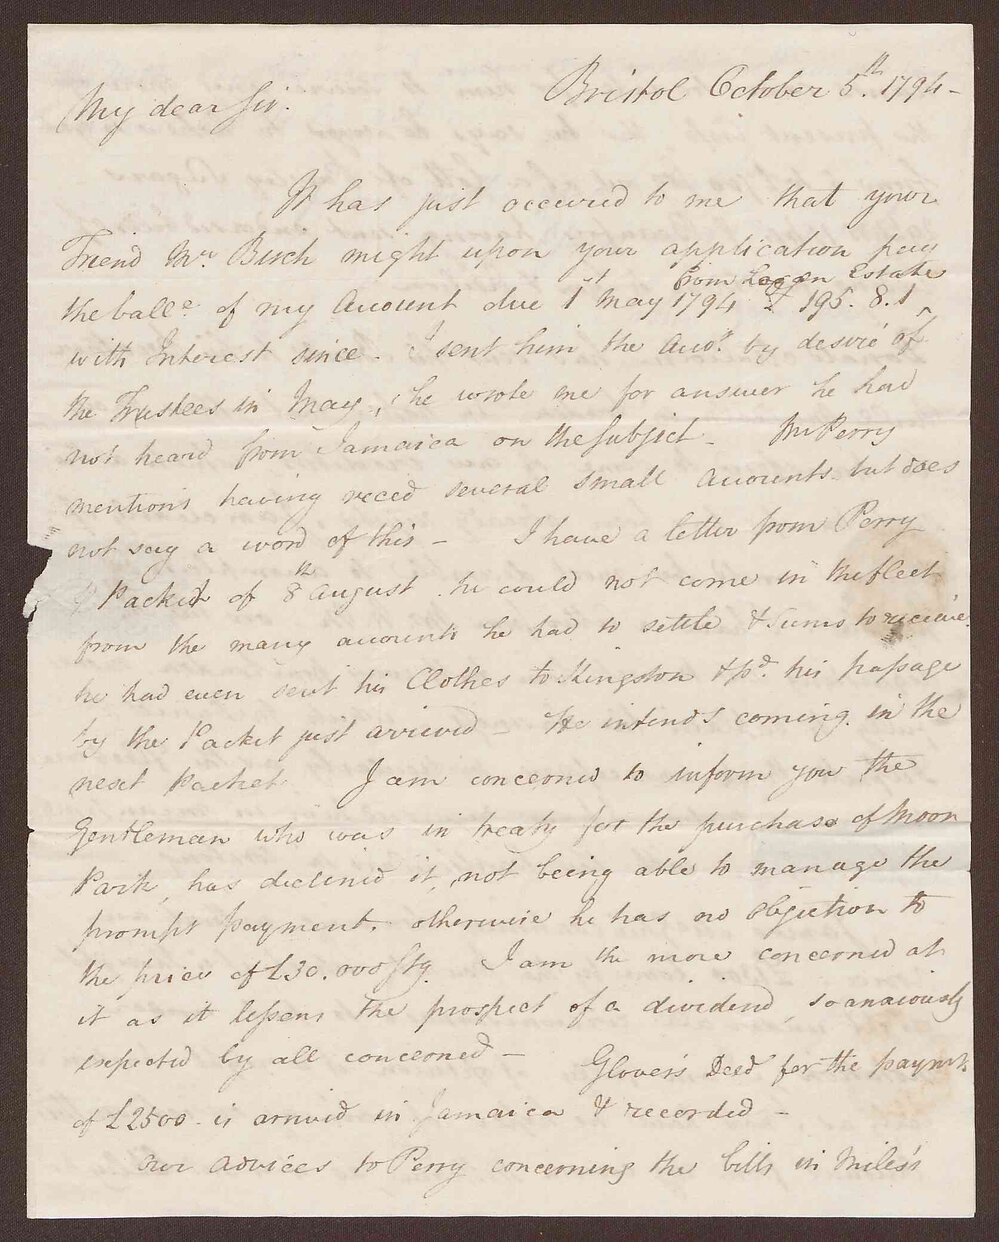 Bristol October 5th. 1794 -
My dear Sir.
It has just occured to me that your
Friend Mr. Birch might upon your application pay
from Logan Estate
the balle. of my Account due 1st May 1794 £ 195. 8. 1
with Interest since - I sent him the Accot. by desire of
the Trustees in May, he wrote me for answer he had
not heard from Jamaica on the subject - Mr Perry
mentions having reced several small Accounts but does
not say a word of this - I have a letter from Perry
Packet of 8th August he could not come in the fleet
from the many accounts he had to settle & Sums to recieve
he had even sent his Clothes to Kingston & pd. his passage
by the Packet just arrived - He intends coming in the
next Packet I am concerned to inform you the
Gentleman who was in treaty for the purchase of Moor
Park, has declined it, not being able to manage the
prompt payment. otherwise he has no objection to
the price of £30.000 Stg. I am the more concerned at
it as it lessens the prospect of a dividend, so anxiously
expected by all concerned - Glover's Deed for the paymt.
of £2500 - is arrived in Jamaica & recorded -
Our advices to Perry concerning the bills in Miles's